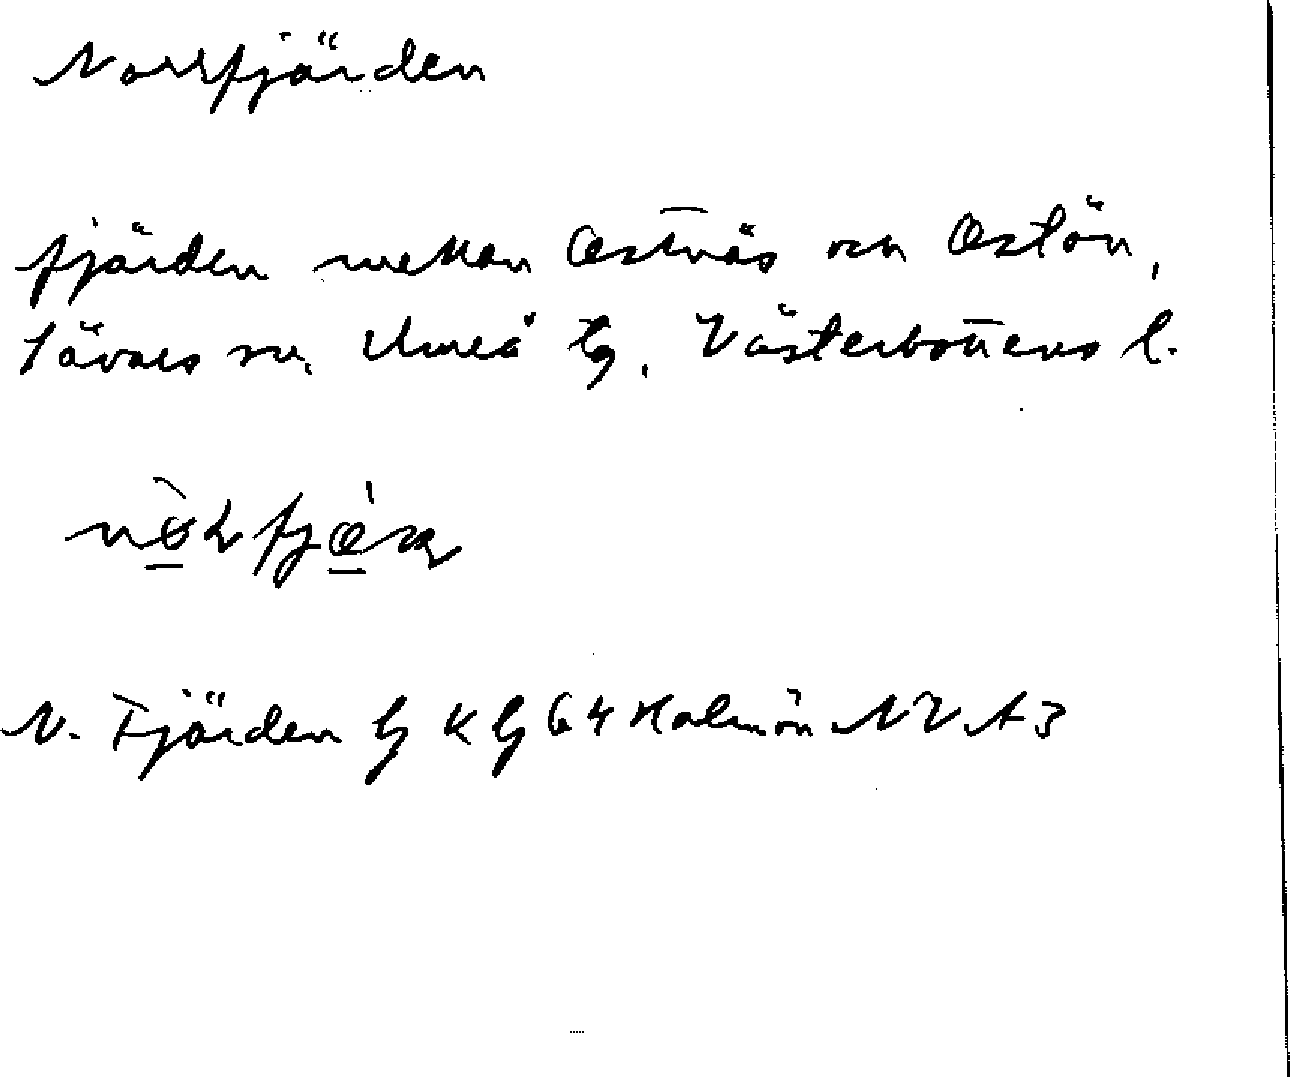 Norrfjärden
fjärden mellan Ostnäs och Ostön,
Sävars sn, Umeå tg, Västerbottens l.
N. Fjärden Ek bl 64 Holmön NV A3